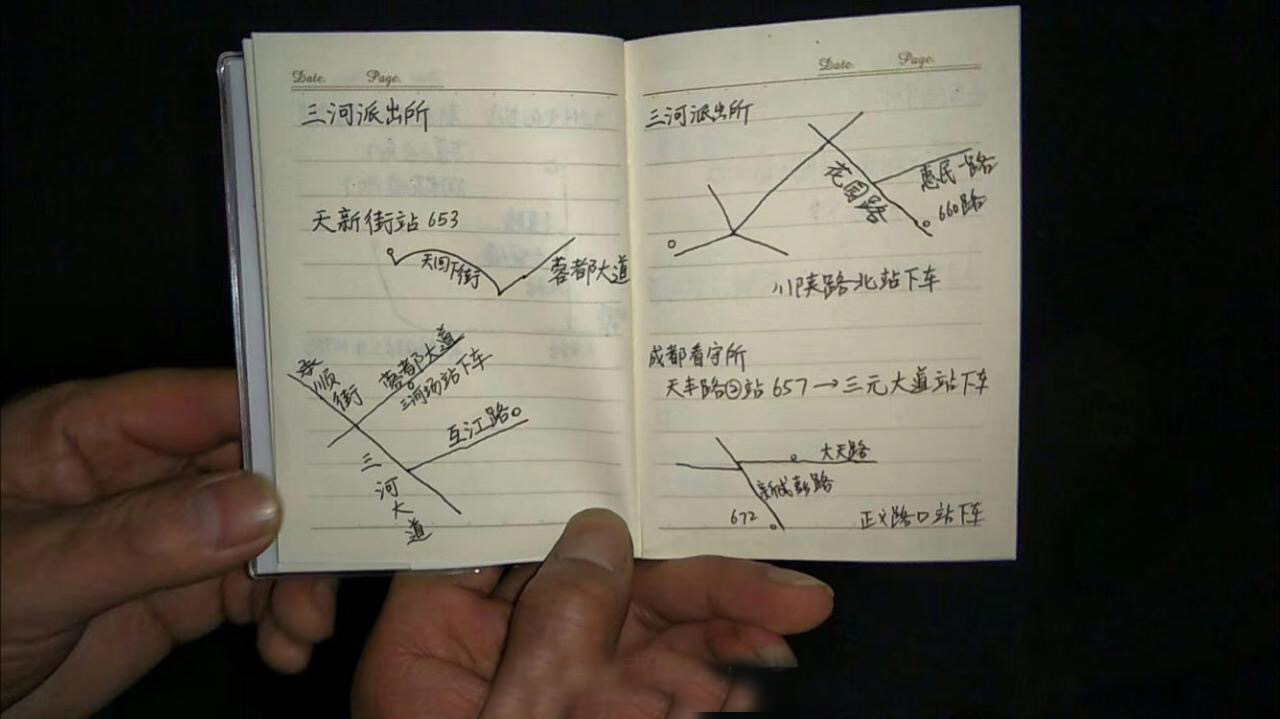 Date. Page.
三河派出所
天新街站 653
天回下街
蓉都大道
顺街
蓉都大道
三河场站下车
互江路
三河大道
Date. Page.
三河派出所
花园路
惠民一路
660路
川陕路北站下车
成都看守所
天丰路②站 657→三元大道站下车
大天路
新成彭路
672
正义路口站下车